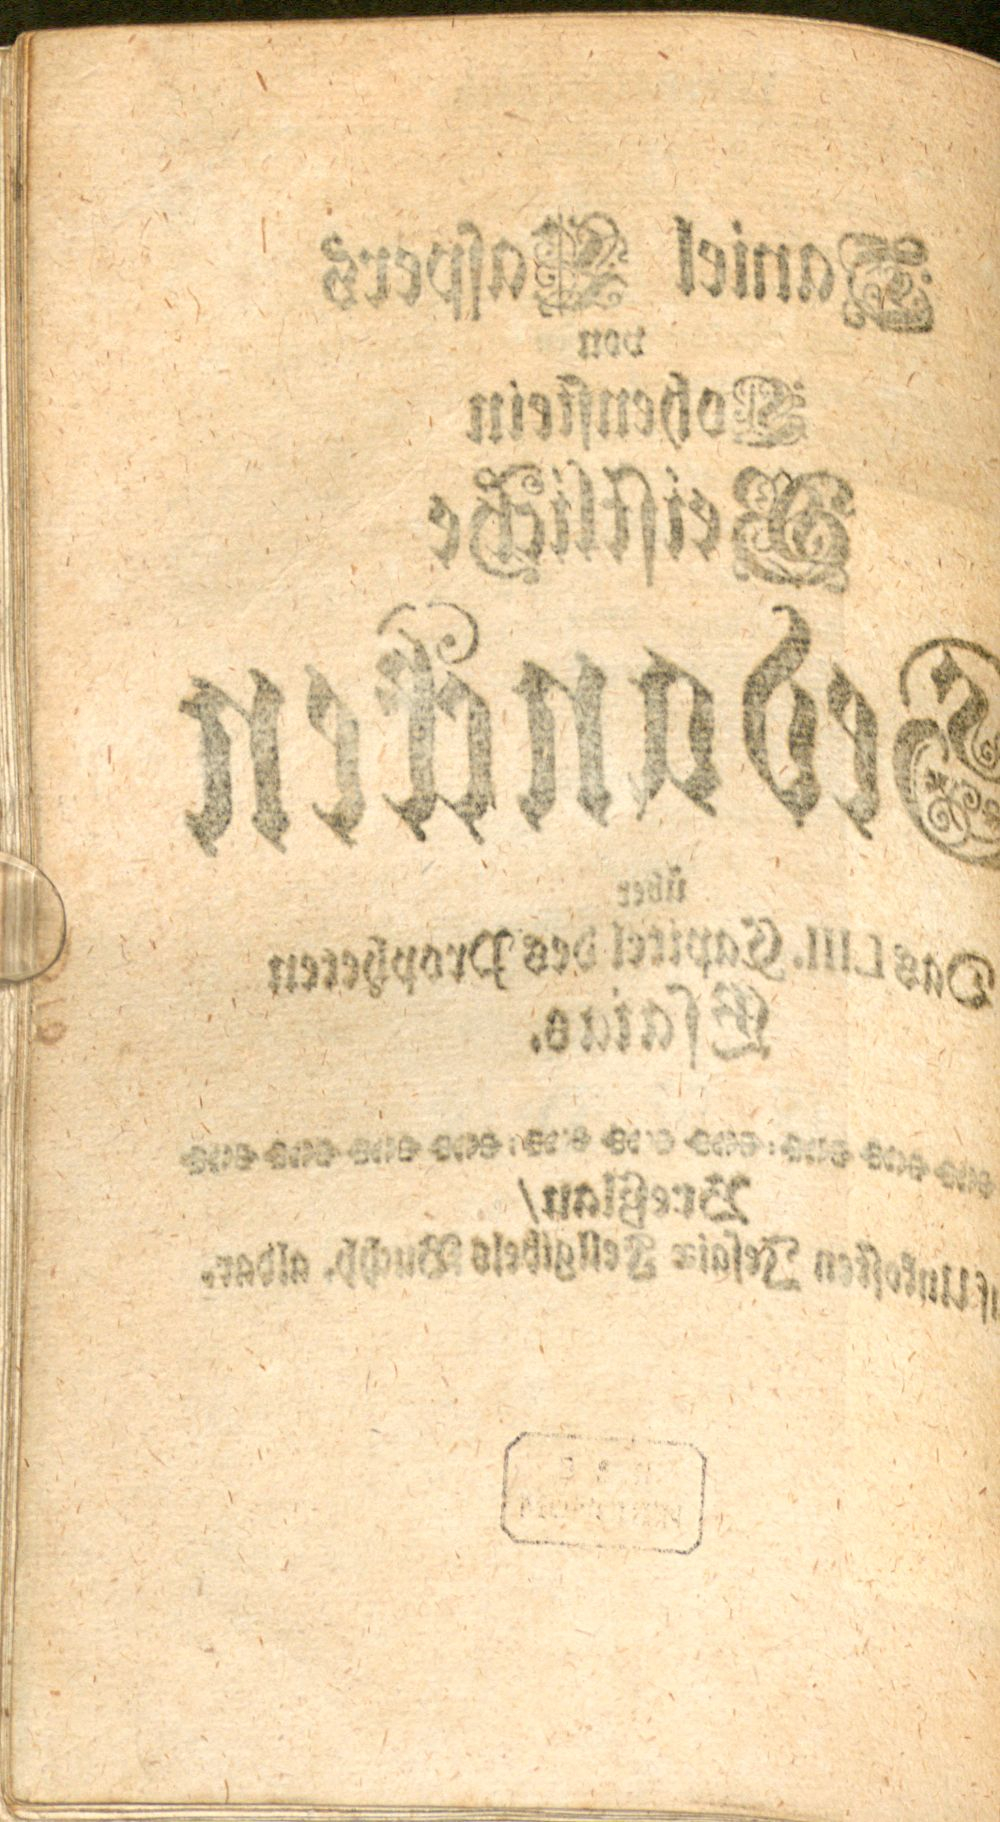 Daniel Caspers
von
Lohenstein
Geistliche
Gedancken
über
Das LIII. Capitel des Propheten
Esaias.
Breßlau/
Unkosten Jesaiæ Fellgibels Buchh. aldar.